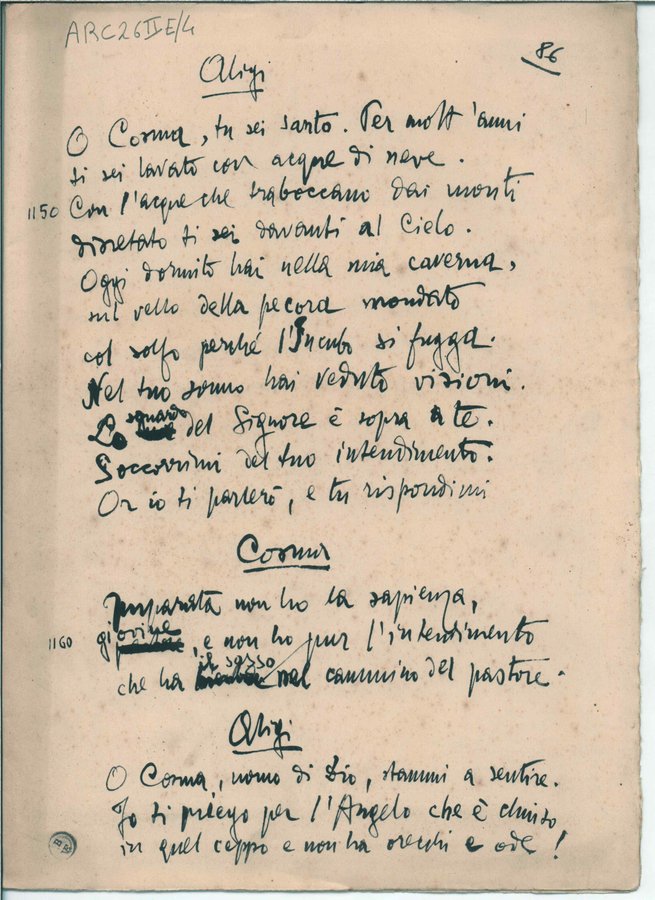 ARC26 II E/4
86
Aligi
O Cosma, tu sei santo. Per molt'anni
ti sei lavato con acque di neve.
1150 Con l'acque che traboccano dai monti
disetato ti sei davanti al Cielo.
Oggi dormito hai nella mia caverna,
sul vello della pecora mondato
col solfo perché l'Incubo si fugga.
Nel tuo sonno hai veduto visioni.
Lo sguardo del Signore è sopra a te.
Soccorrimi del tuo intendimento.
Or io ti parlerò, e tu rispondimi
Cosma
Imparata non ho la sapienza,
1160 giovine, e non ho pur l'intendimento
che ha il sasso nel cammino del pastore.
Aligi
O Cosma, uomo di Dio, stammi a sentire.
Io ti priego per l'Angelo che è chiuso
in quel ceppo e non ha orecchi e ode!